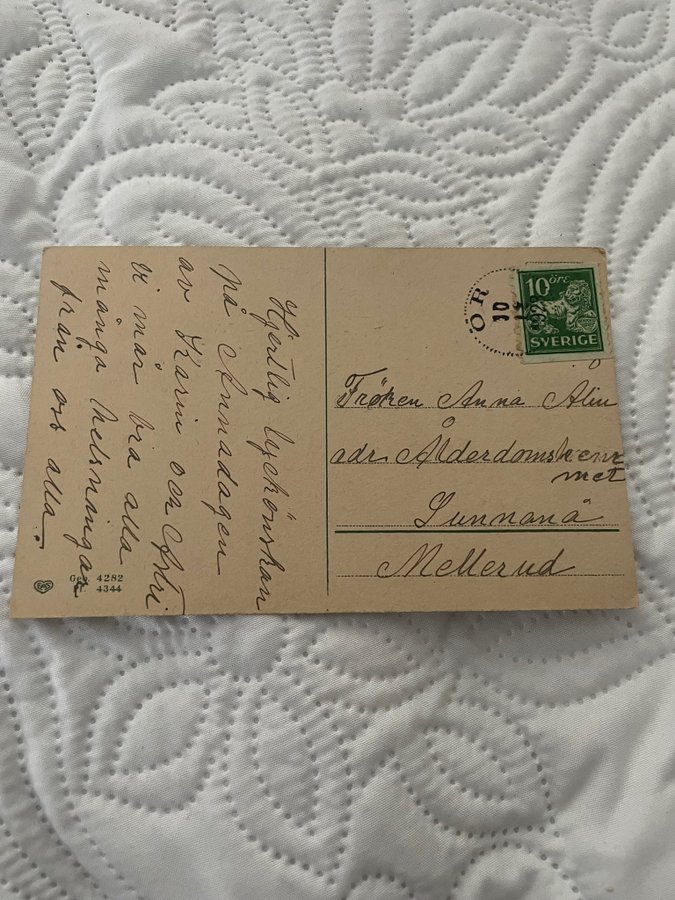 Hjertlig lyckönskan
på Annadagen
av Karin och Astri
vi mår bra alla
många helsningar
från oss alla.
Ges. 4282
4344
EAS
OR
10
12
10 ÖRE
SVERIGE
Fröken Anna Alm
adr. Ålderdomshem
met
Sunnanå
Mellerud